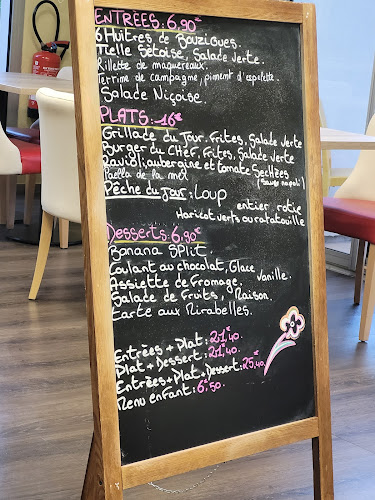 ENTRÉES: 6,90€
6 Huîtres de Bouzigues.
Tielle Sétoise, Salade verte.
Rillette de maquereaux.
Terrime de campagne, piment d'espelette.
Salade Niçoise.
PLATS: 16€
Grillade du Jour. Frites, Salade verte
Burger du CHEF, Frites, Salade verte
Ravioli; aubergine et tomate Sechées
(sauce napoli)
Paella de la mer
Pêche du Jour: Loup
entier rotie
Haricot verts ou ratatouille
Desserts: 6,90€
Banana SPLIT
Coulant au chocolat, Glace Vanille.
Assiette de Fromage.
Salade de Fruits, Maison.
tarte aux Mirabelles.
Entrèes + Plat: 21€,40.
Plat + Dessert: 21€,40.
Entrèes + Plat + Dessert: 25€,40,
Menu enfant: 6€,50.